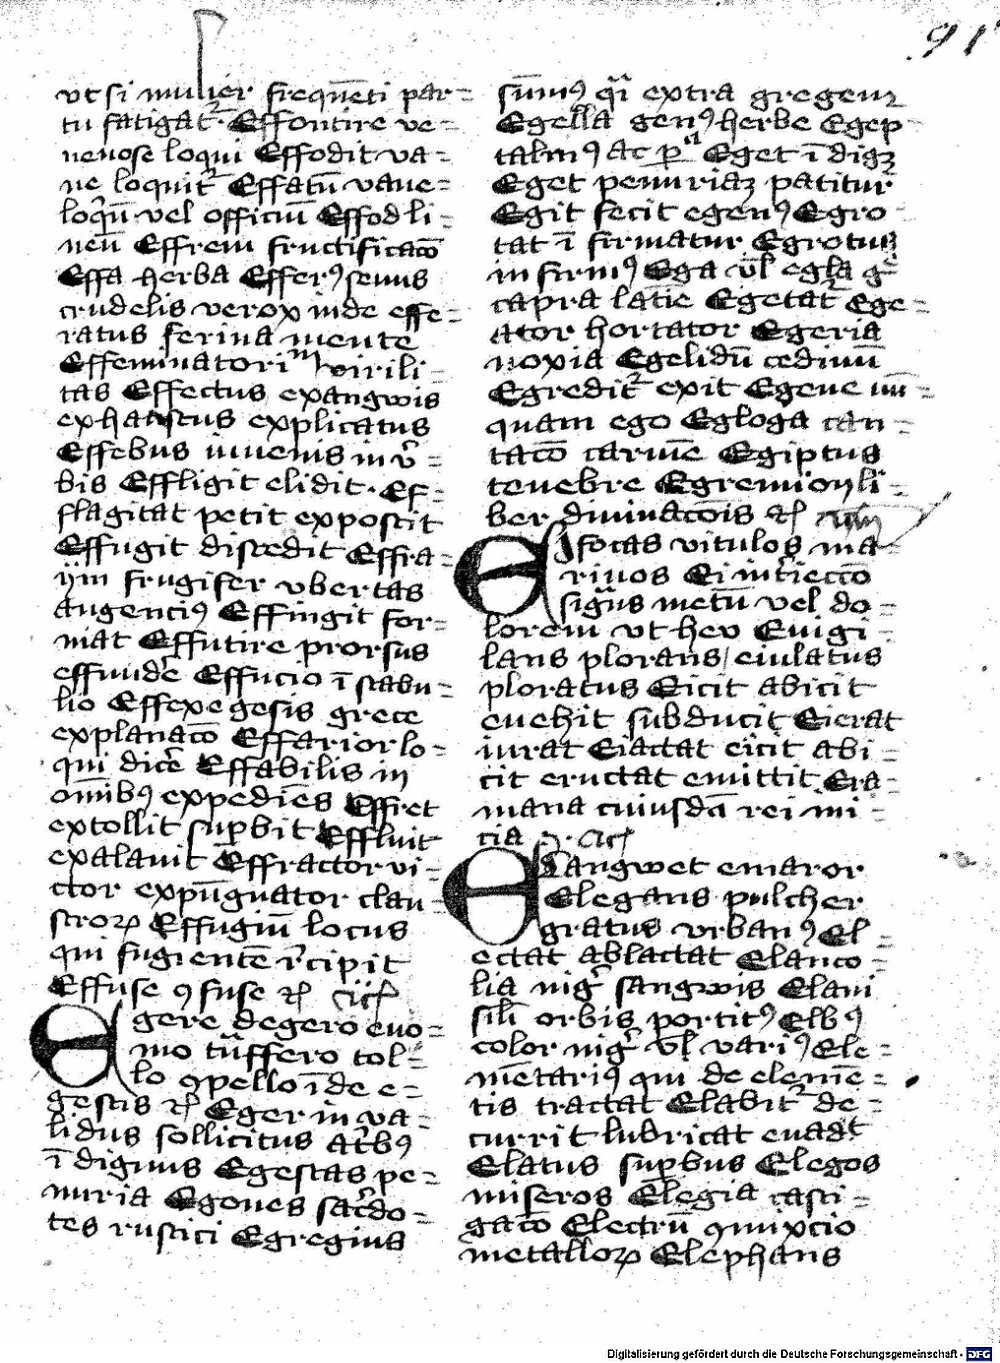 91
ut si mulier freque̅ti par=
tu fatigat᷑ Effontire ve=
nenose loqui Effodit va=
ne loquit᷑ Effatu̅ vane=
loqu̅ vel officiu̅ Effod li=
neu̅ Effrem fructificaco̅
Effa herba Efferꝰ sevus
crudelis verox inde effe=
ratus ferina mente
Effeminatori virili=
tas Effectus exangwis
exhaustus explicatus
Effebus iuvenis in v̅=
bis Effligit elidit Ef=
flagitat petit exposcit
Effugit discedit Effra=
frugifer vbertas
augenciꝰ Effingit for=
mat Effutire prorsus
effunde̅ Effucio i̅ stabu=
lio Effexegesis grece
explanaco̅ Effarior lo=
qui dice̅ Effabilis in
om̅ibꝰ expedie̅s Effret
extollit supbit Effluit
exalavit Effractor vi=
ctor expu̅gnator clau=
stroꝝ Effugiu̅ locus
qui fugiente̅ r̅cipit
Effuse ꝯfuse
Egere degero evo=
mo tn̅sfero tol=
lo ꝯpello i̅de e=
gestis Eger in va=
lidus sollicitus at̅bꝰ
i̅dignus Egestas pe=
nuria Egones sac̅do=
tes rustici Egregius
su̅mꝰ qi̅ extra gregem
Egella genꝰ herbe Egep=
talmꝰ ac Eget i̅digꝫ
Eget penuriaꝫ patitur
Egit fecit egenꝰ Egro=
tat i̅firmatur Egrotus
infirmꝰ Ega vl̅ egla g̅
capra lati̅e Egetat᷑ Ege=
ator hortator Egeria
noxia Egelidu̅ cediuu̅
Egredit᷑ exit Egene nu̅=
quam ego Egloga can=
taco̅ carme̅ Egiptus
tenebre Egremion li=
ber divinaco̅is
Eifocas vitulos ma=
rinos Ei int̅iecco̅
sig̅ns metu̅ vel do=
lorem vt hev Euigi=
lans plorans/eiulatus
ploratus Eicit abicit
evehit subducit Eierat
iurat Eiactat eicit abi=
cit eructat emittit Era=
mana cuiusda̅ rei mi=
cia
Elangwet emaror
Elegans pulcher
gratus vrbanꝰ El=
ectat ablactat Elanco=
lia nig̅ sangwis Elavi
sili̅ orbis portitꝰ Elbꝰ
color nig̅ vl̅ variꝰ Ele=
me̅tariꝰ qui de eleme̅=
tis tractat Elabit᷑ de=
currit lubricat evadt
Elatus supbus Elegos
miseros Elegia casti=
gaco̅ Electru̅ ꝯmixcio
metalloꝝ Elephans
Digitalisierung gefördert durch die Deutsche Forschungsgemeinschaft - DFG